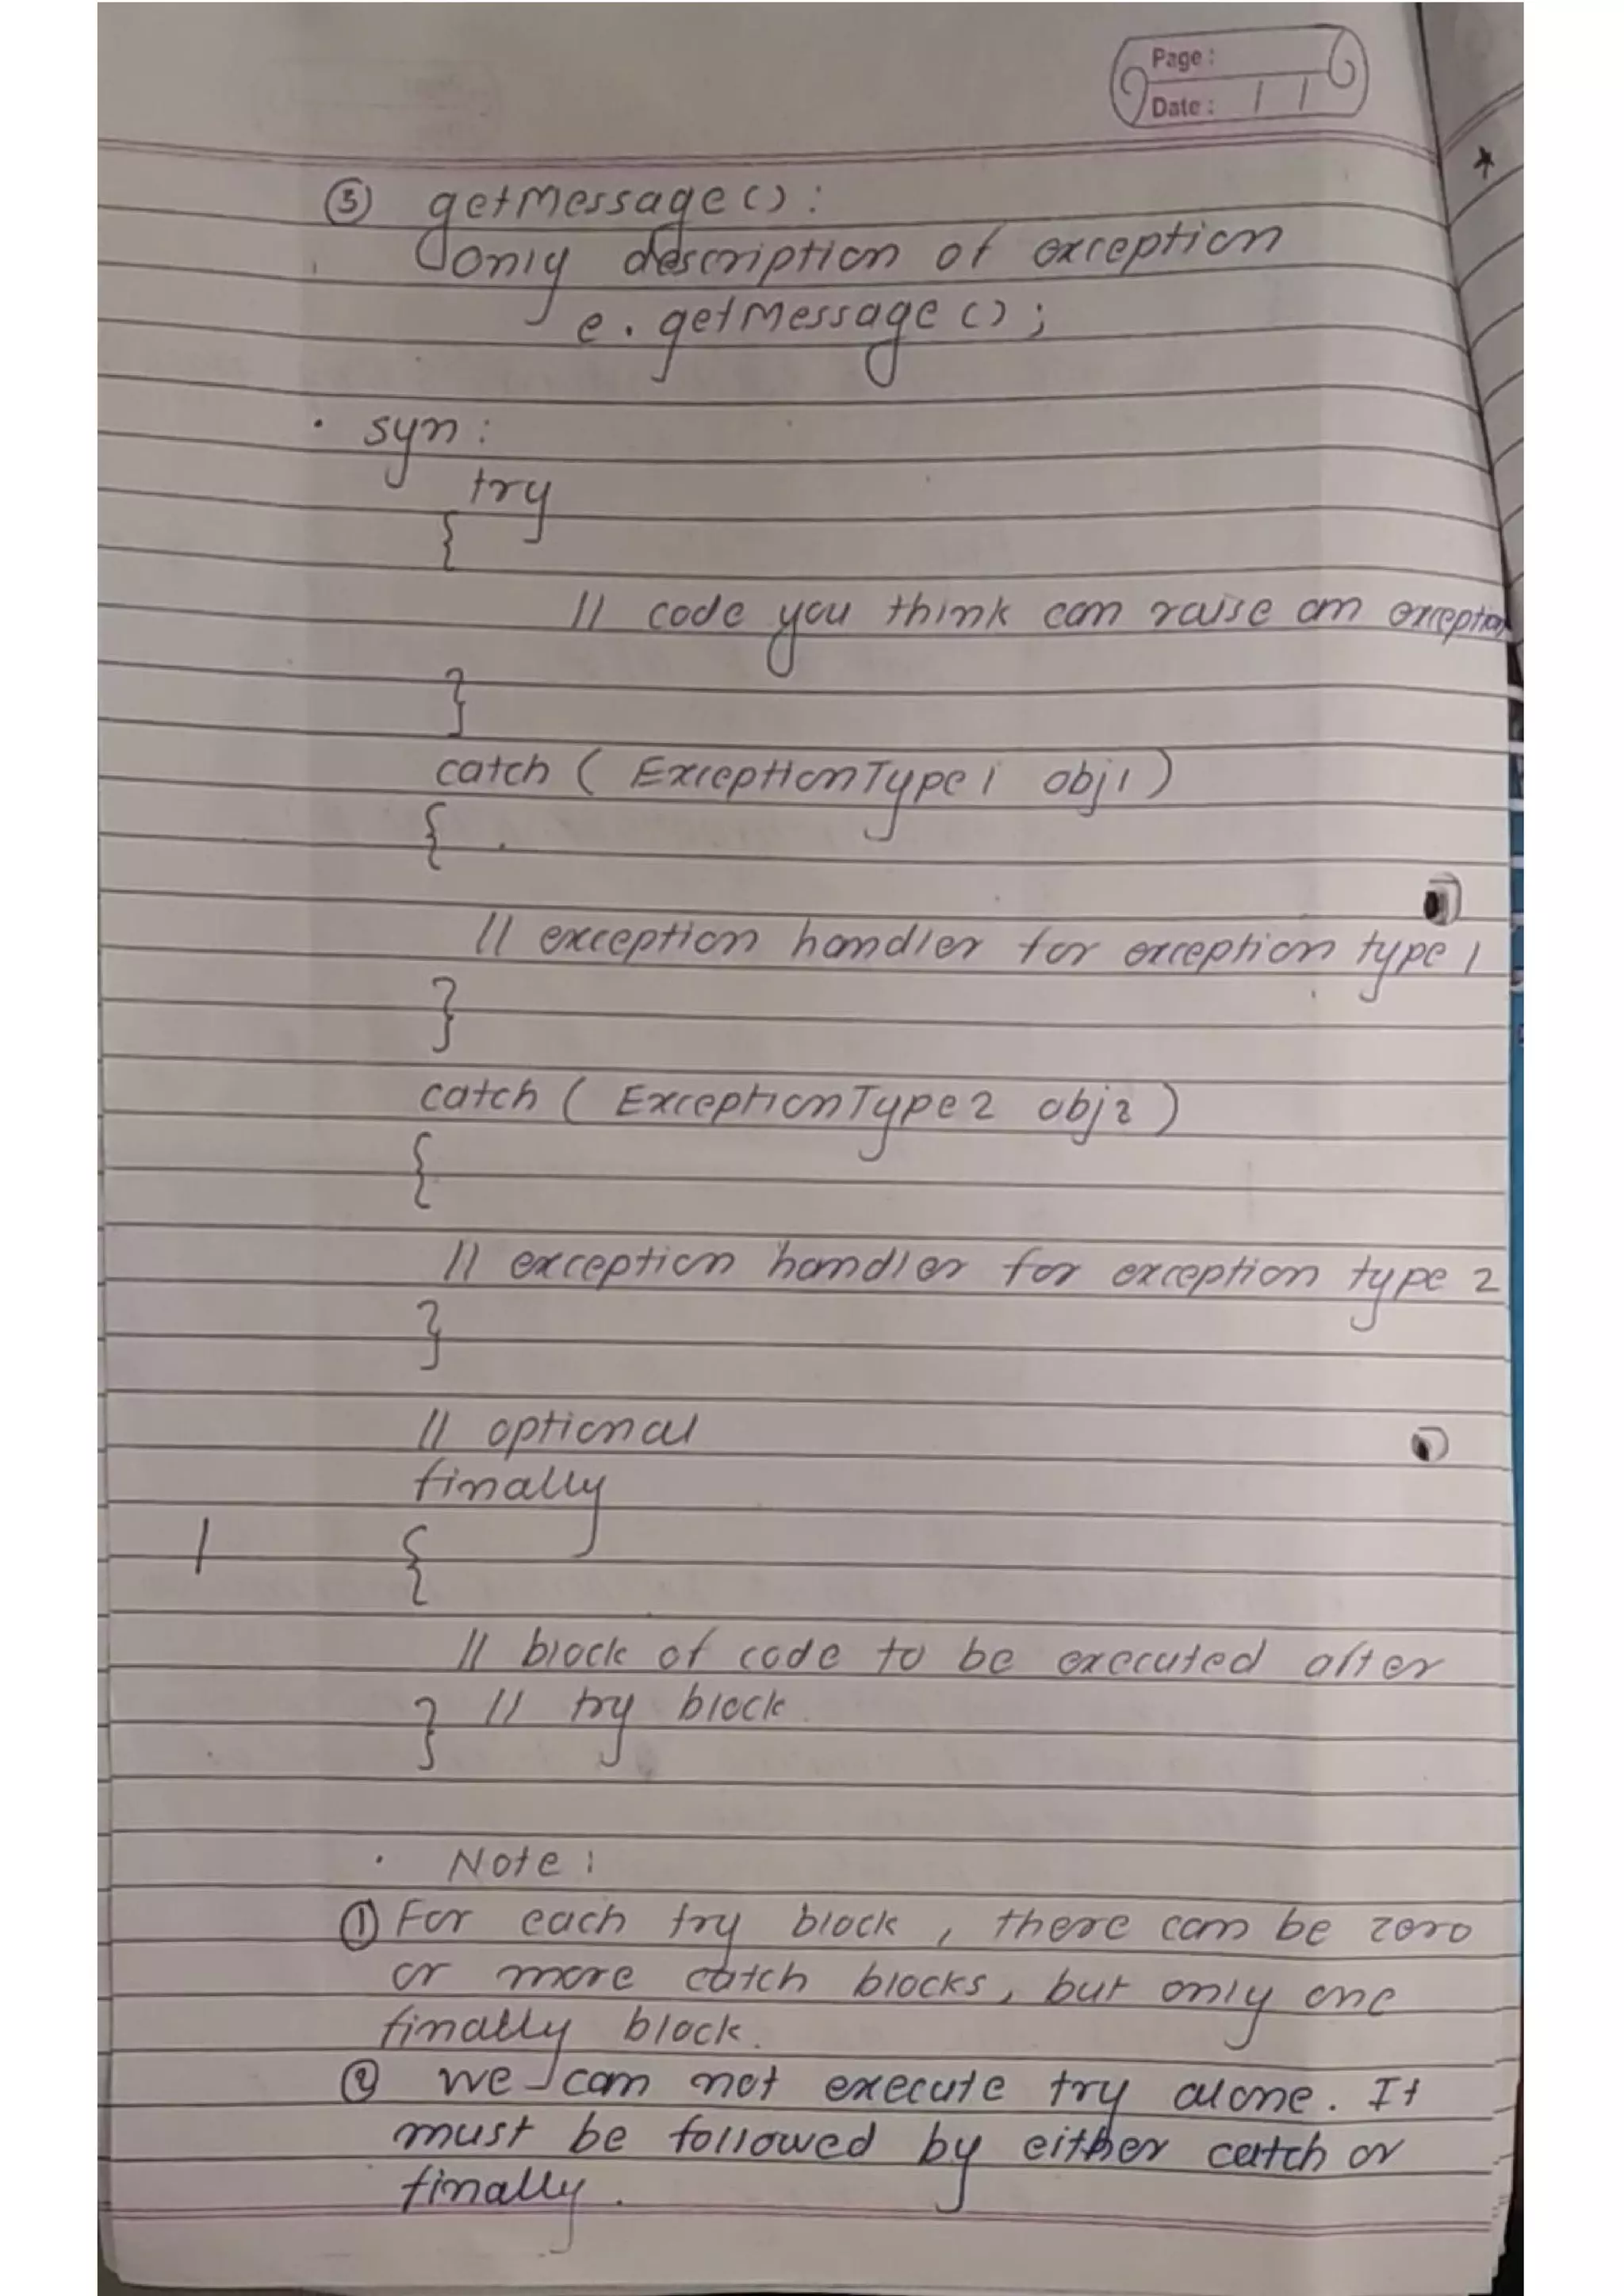 Page :
Date : / /
③ getMessage() :
only description of exception
e. getMessage();
• syn :
try
{
// code you think can raise an exception
}
catch ( ExceptionType1 obj1 )
{
// exception handler for exception type 1
}
catch ( ExceptionType2 obj2 )
{
// exception handler for exception type 2
}
// optional
finally
{
// block of code to be executed after
} // try block
• Note :
① For each try block , there can be zero
or more catch blocks, but only one
finally block.
② we can not execute try alone. It
must be followed by either catch or
finally.